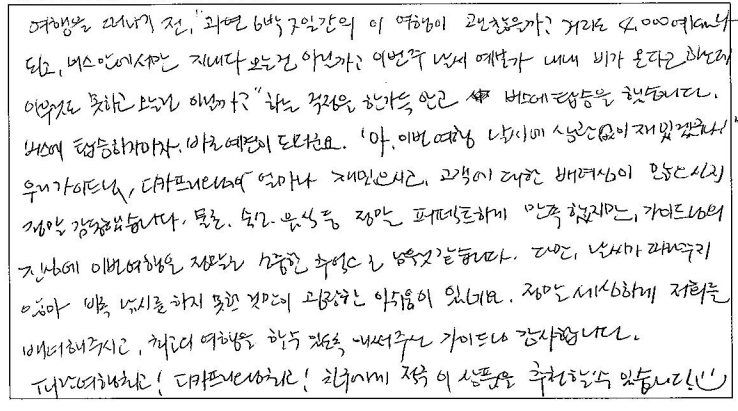 여행을 떠나기 전, "과연 6박 7일간의 이 여행이 괜찮을까? 거리도 4,000여km나
되고, 버스 안에서만 지내다 오는건 아닐까? 이번주 날씨 예보가 내내 비가 온다고 하는데
아무것도 못하고 오는건 아닐까?" 하는 걱정을 한가득 안고 버스에 탑승을 했습니다.
버스에 탑승하자마자, 바로 예견이 도더군요. '아, 이번여행 날씨에 상관없이 재밌겠구나!'
우리가이드님, 디카프리오 얼마나 재밌으시고, 고객에 대한 배려심이 많으신지
정말 감동했습니다. 물론, 숙소, 음식등 정말 퍼펙트하게 만족했지만, 가이드님의
진심에 이번여행은 정말로 소중한 추억으로 남을것 같습니다. 다만, 날씨가 따라주지
않아 비록 낚시를 하지 못한 것만이 굉장한 아쉬움이 있네요. 정말 세심하게 저희를
배려해주시고, 최고의 여행을 할수 있도록 애써주신 가이드님 감사합니다.
여행최고! 디카프리오최고! 친구에게 적극 이 상품을 추천할수 있습니다!